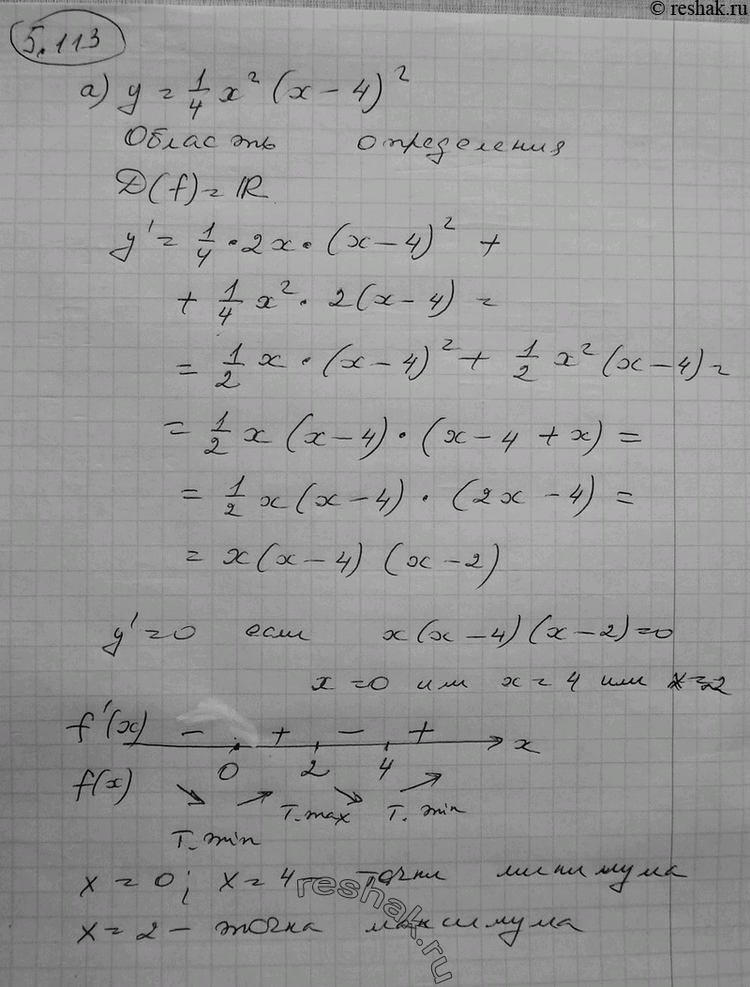 © reshak.ru
5.113
а) y = 1/4 x² (x - 4)²
Область определения
D(f) = ℝ
y' = 1/4 · 2x · (x - 4)² +
+ 1/4 x² · 2(x - 4) =
= 1/2 x · (x - 4)² + 1/2 x² (x - 4) =
= 1/2 x (x - 4) · (x - 4 + x) =
= 1/2 x (x - 4) · (2x - 4) =
= x (x - 4) (x - 2)
y' = 0 если x (x - 4) (x - 2) = 0
x = 0 или x = 4 или x = 2
f'(x) - + - + x
0 2 4
f(x) ↘ ↗ ↘ ↗
т. min т. max т. min
x = 0; x = 4 - точки минимума
x = 2 - точка максимума
reshak.ru